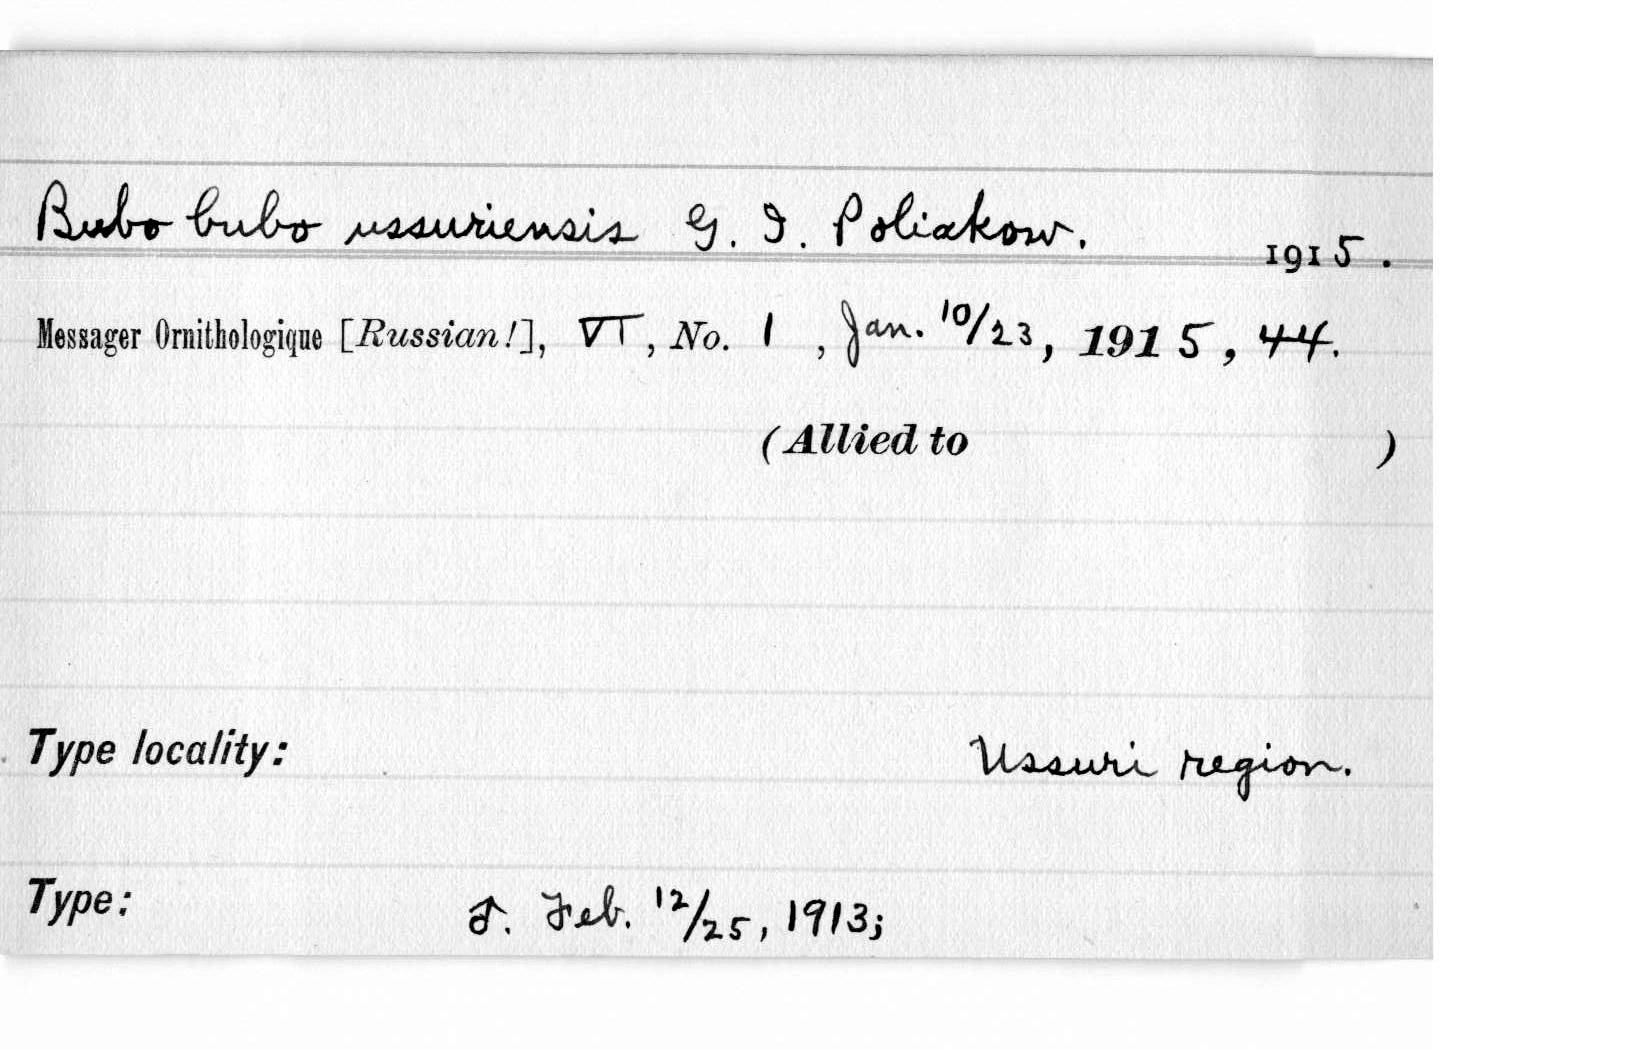 Bubo bubo ussuriensis G. I. Poliakow. 1915.
Messager Ornithologique [Russian!], VI, No. 1, Jan. 10/23, 1915, 44.
(Allied to )
Type locality: Ussuri region.
Type: ♂. Feb. 12/25, 1913;